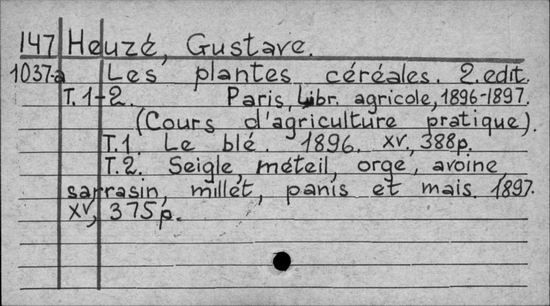 147 Heuzé, Gustave.
1037-a Les plantes céréales. 2.edit.
T. 1-2. Paris, Libr. agricole, 1896-1897.
(Cours d'agriculture pratique).
T.1. Le blé. 1896. XV, 388p.
T.2. Seigle, méteil, orge, avoine,
sarrasin, millet, panis et mais. 1897.
XV, 375p.